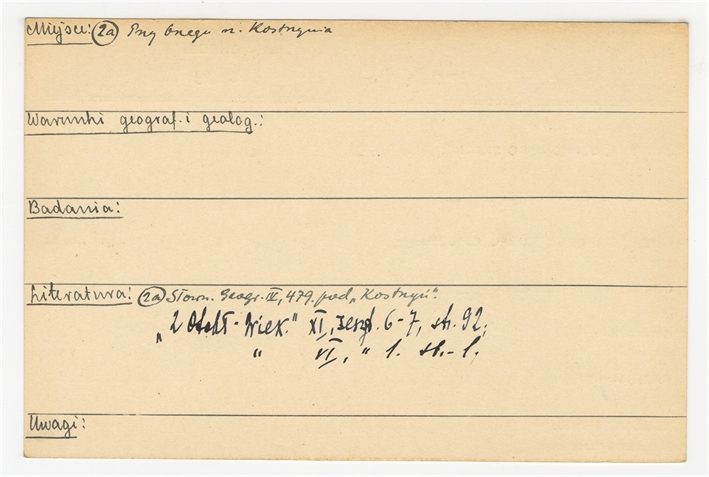 Miejsce: (2a) Przy brzegu rz. Kostrynia
Warunki geograf. i geolog.:
Badania:
Literatura: (2a) Słown. Geogr. IV, 479. pod „Kostryń".
XI, zesz. 6-7, str. 92;
" VI, " 1. str.-1.
Uwagi: